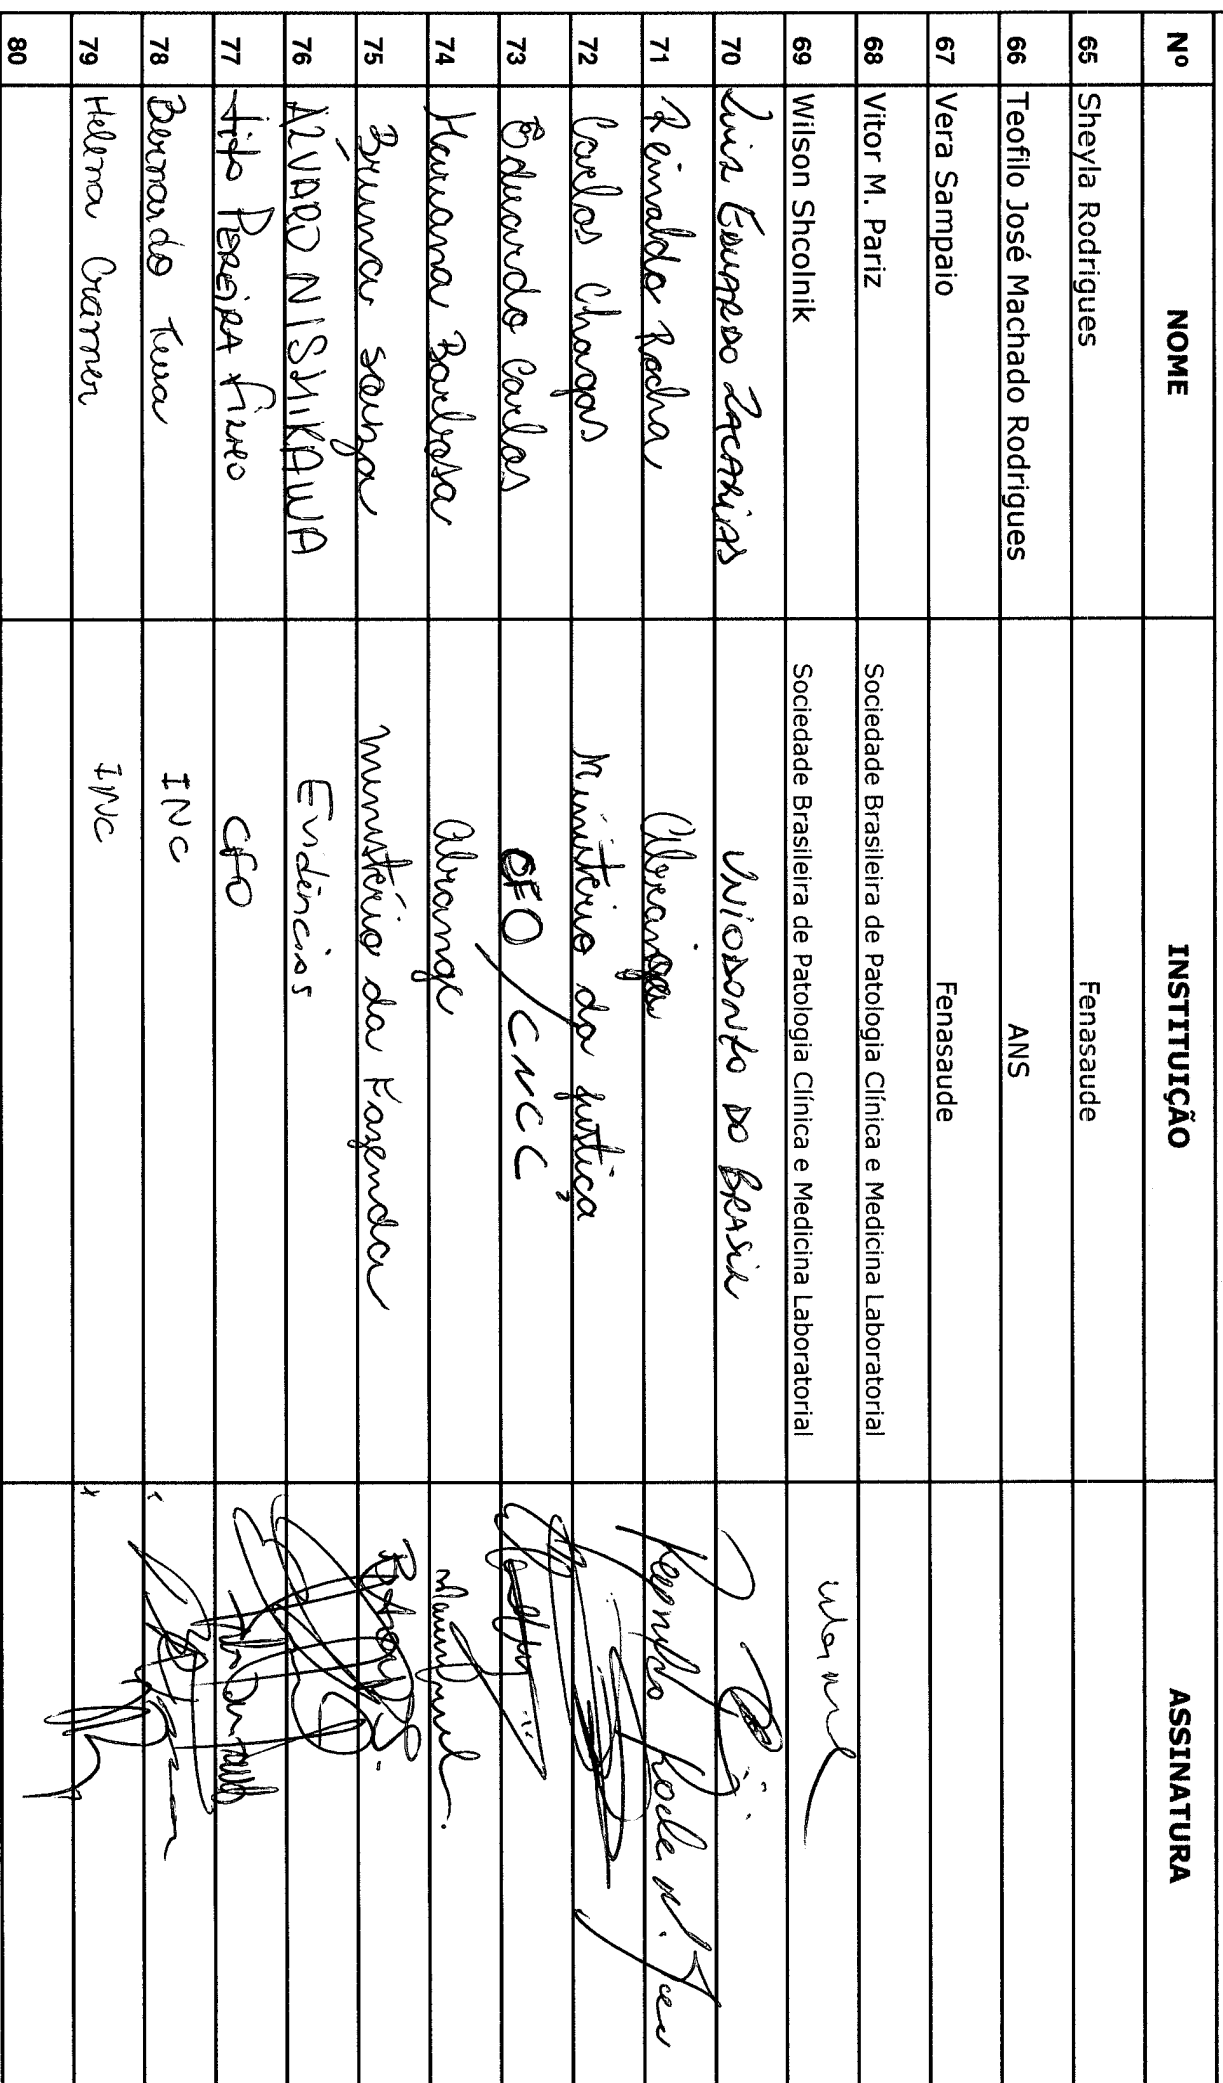 Nº NOME INSTITUIÇÃO ASSINATURA
65 Sheyla Rodrigues Fenasaude
66 Teofilo José Machado Rodrigues ANS
67 Vera Sampaio Fenasaude
68 Vitor M. Pariz Sociedade Brasileira de Patologia Clínica e Medicina Laboratorial
69 Wilson Shcolnik Sociedade Brasileira de Patologia Clínica e Medicina Laboratorial
70 Luiz Eduardo Zacarias Uniodonto do Brasil
71 Reinaldo Rocha Abramge
72 Carlos Chagas Ministerio da Justiça
73 Eduardo Carlos CFO / CNCC
74 Mariana Barbosa Abramge
75 Bruna Souza Ministério da Fazenda
76 ÁLVARO NISHIKAWA Evidências
77 Tito Pereira Filho CFO
78 Bernardo Tura INC
79 Helena Cramer INC
80